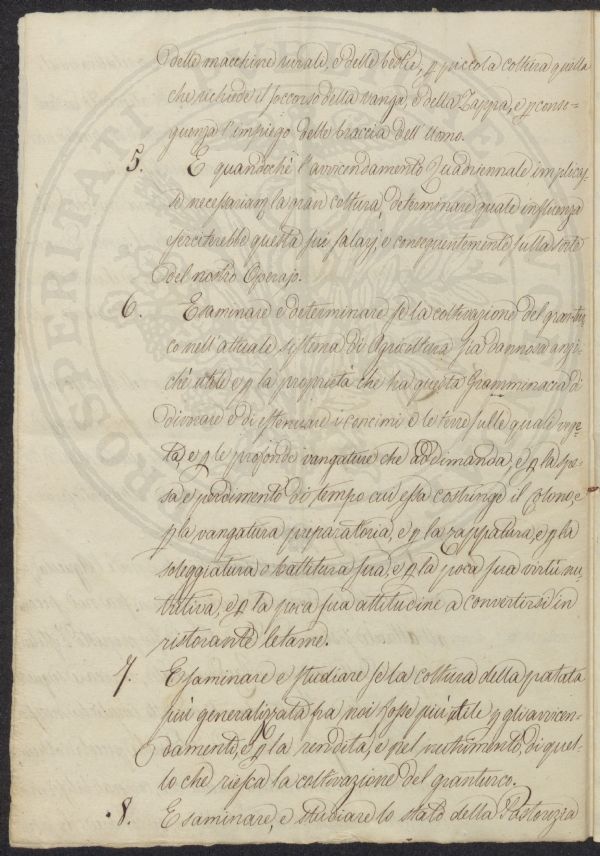 delle macchine rurale e delle bestie, p piccola coltura quella
che richiede il soccorso della vanga, e della Zappa, e p conse-
guenza l'impiego delle braccia dell'Uomo.
5. E quandochè l'avvicendamento Quadriennale implicas-
se necessariam la gran coltura, determinare quale influenza
eserciterebbe questa sui salarj, e conseguentemente sulla sorte
del nostro Operajo.
6. Esaminare e determinare se la coltivazione del grantur-
co nell'attuale sistema di Agricoltura sia dannosa anzi-
chè utile e p la proprietà che ha questa Gramminacia di
divorare e di estenuare i concimi e le terre sulle quale vege-
ta, e p le profonde vangature che addimanda, e p la spe-
sa e perdimento di tempo cui essa costringe il colono, e
p la vangatura preparatoria, e p la zappatura, e p la
soleggiatura o battitura sua, e p la poca sua virtù nu-
tritiva, e p la poca sua attitudine a convertirsi in
ristorante letame.
7. Esaminare e studiare se la coltura della patata
più generalizzata fra noi fosse più utile p gli avvicen-
damenti, e p la rendita, e pel nutrimento, di quel-
lo che riesca la coltivazione del granturco.
8. Esaminare, e studiare lo stato della Pastorizia
PROSPERITATI